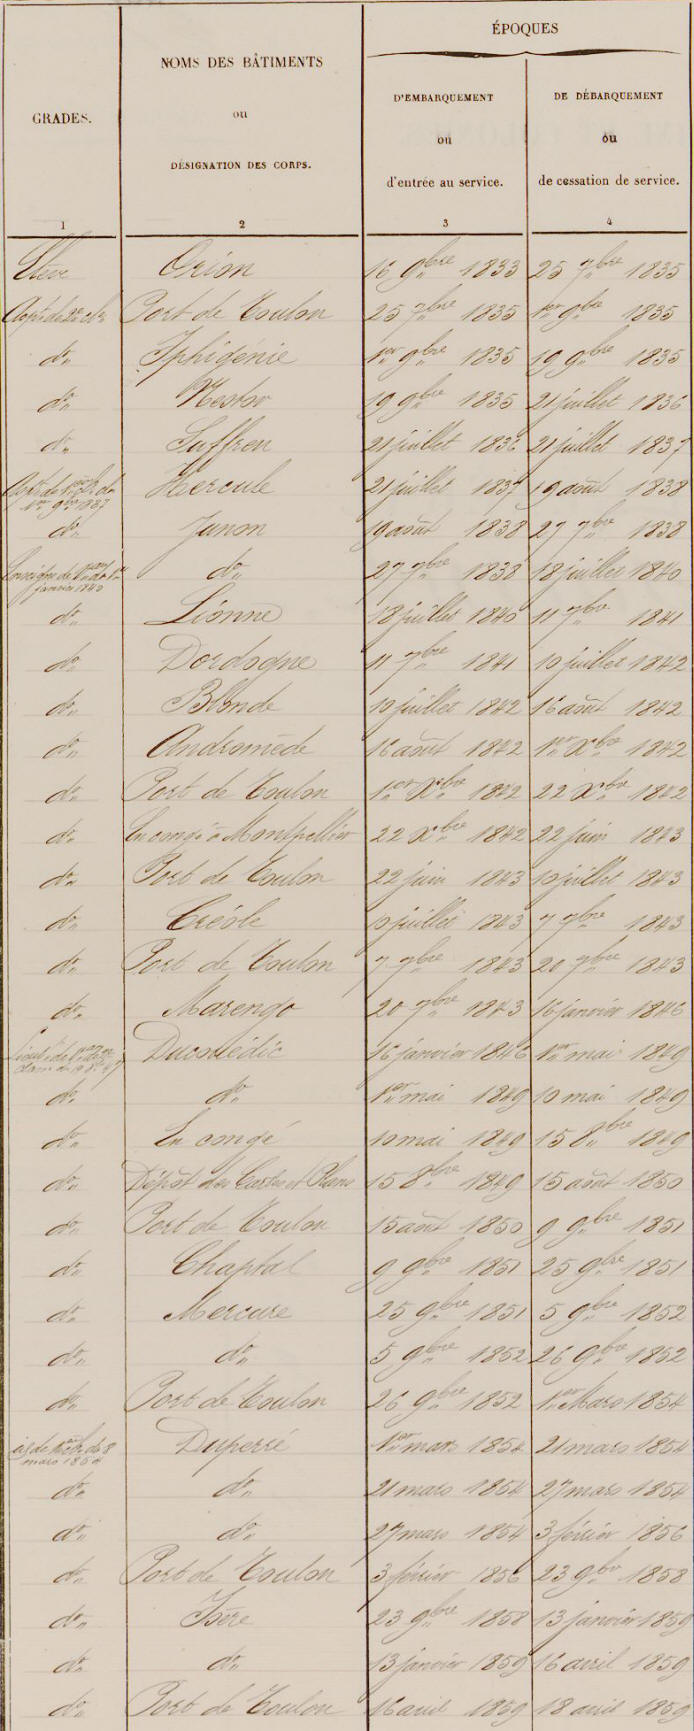 GRADES.
NOMS DES BÂTIMENTS
ou
DÉSIGNATION DES CORPS.
ÉPOQUES
D'EMBARQUEMENT
ou
d'entrée au service.
DE DÉBARQUEMENT
ou
de cessation de service.
1 2 3 4
Elève Orion 16 9bre 1833 25 7bre 1835
Aspt de 2e cl. Port de Toulon 25 7bre 1835 1er 9bre 1835
do Iphigénie 1er 9bre 1835 19 9bre 1835
do Nestor 19 9bre 1835 21 juillet 1836
do Suffren 21 juillet 1836 21 juillet 1837
Hercule 21 juillet 1837 19 août 1838
1er 9bre 1837
do Junon 19 août 1838 27 7bre 1838
Enseigne de do 27 7bre 1838 18 juillet 1840
janvier 1840
do Lionne 18 juillet 1840 11 7bre 1841
do Dordogne 11 7bre 1841 10 juillet 1842
do Blonde 10 juillet 1842 16 août 1842
do Andromède 16 août 1842 1er Xbre 1842
do Port de Toulon 1er Xbre 1842 22 Xbre 1842
do En congé à Montpellier 22 Xbre 1842 22 juin 1843
do Port de Toulon 22 juin 1843 10 juillet 1843
do Créole 10 juillet 1843 7 7bre 1843
do Port de Toulon 7 7bre 1843 20 7bre 1843
do Marengo 20 7bre 1843 16 janvier 1846
Ducouëdic 16 janvier 1846 1er mai 1849
do do 1er mai 1849 10 mai 1849
do En congé 10 mai 1849 15 8bre 1849
do Dépôt des Cartes et Plans 15 8bre 1849 15 août 1850
do Port de Toulon 15 août 1850 9 9bre 1851
do Chaptal 9 9bre 1851 25 9bre 1851
do Mercure 25 9bre 1851 5 9bre 1852
do do 5 9bre 1852 26 9bre 1852
do Port de Toulon 26 9bre 1852 1er Mars 1854
Duperré 1er mars 1854 21 mars 1854
mars 1854
do do 21 mars 1854 27 mars 1854
do do 27 mars 1854 3 février 1856
do Port de Toulon 3 février 1856 23 9bre 1858
do Isère 23 9bre 1858 13 janvier 1859
do do 13 janvier 1859 16 avril 1859
do Port de Toulon 16 avril 1859 18 avril 1859